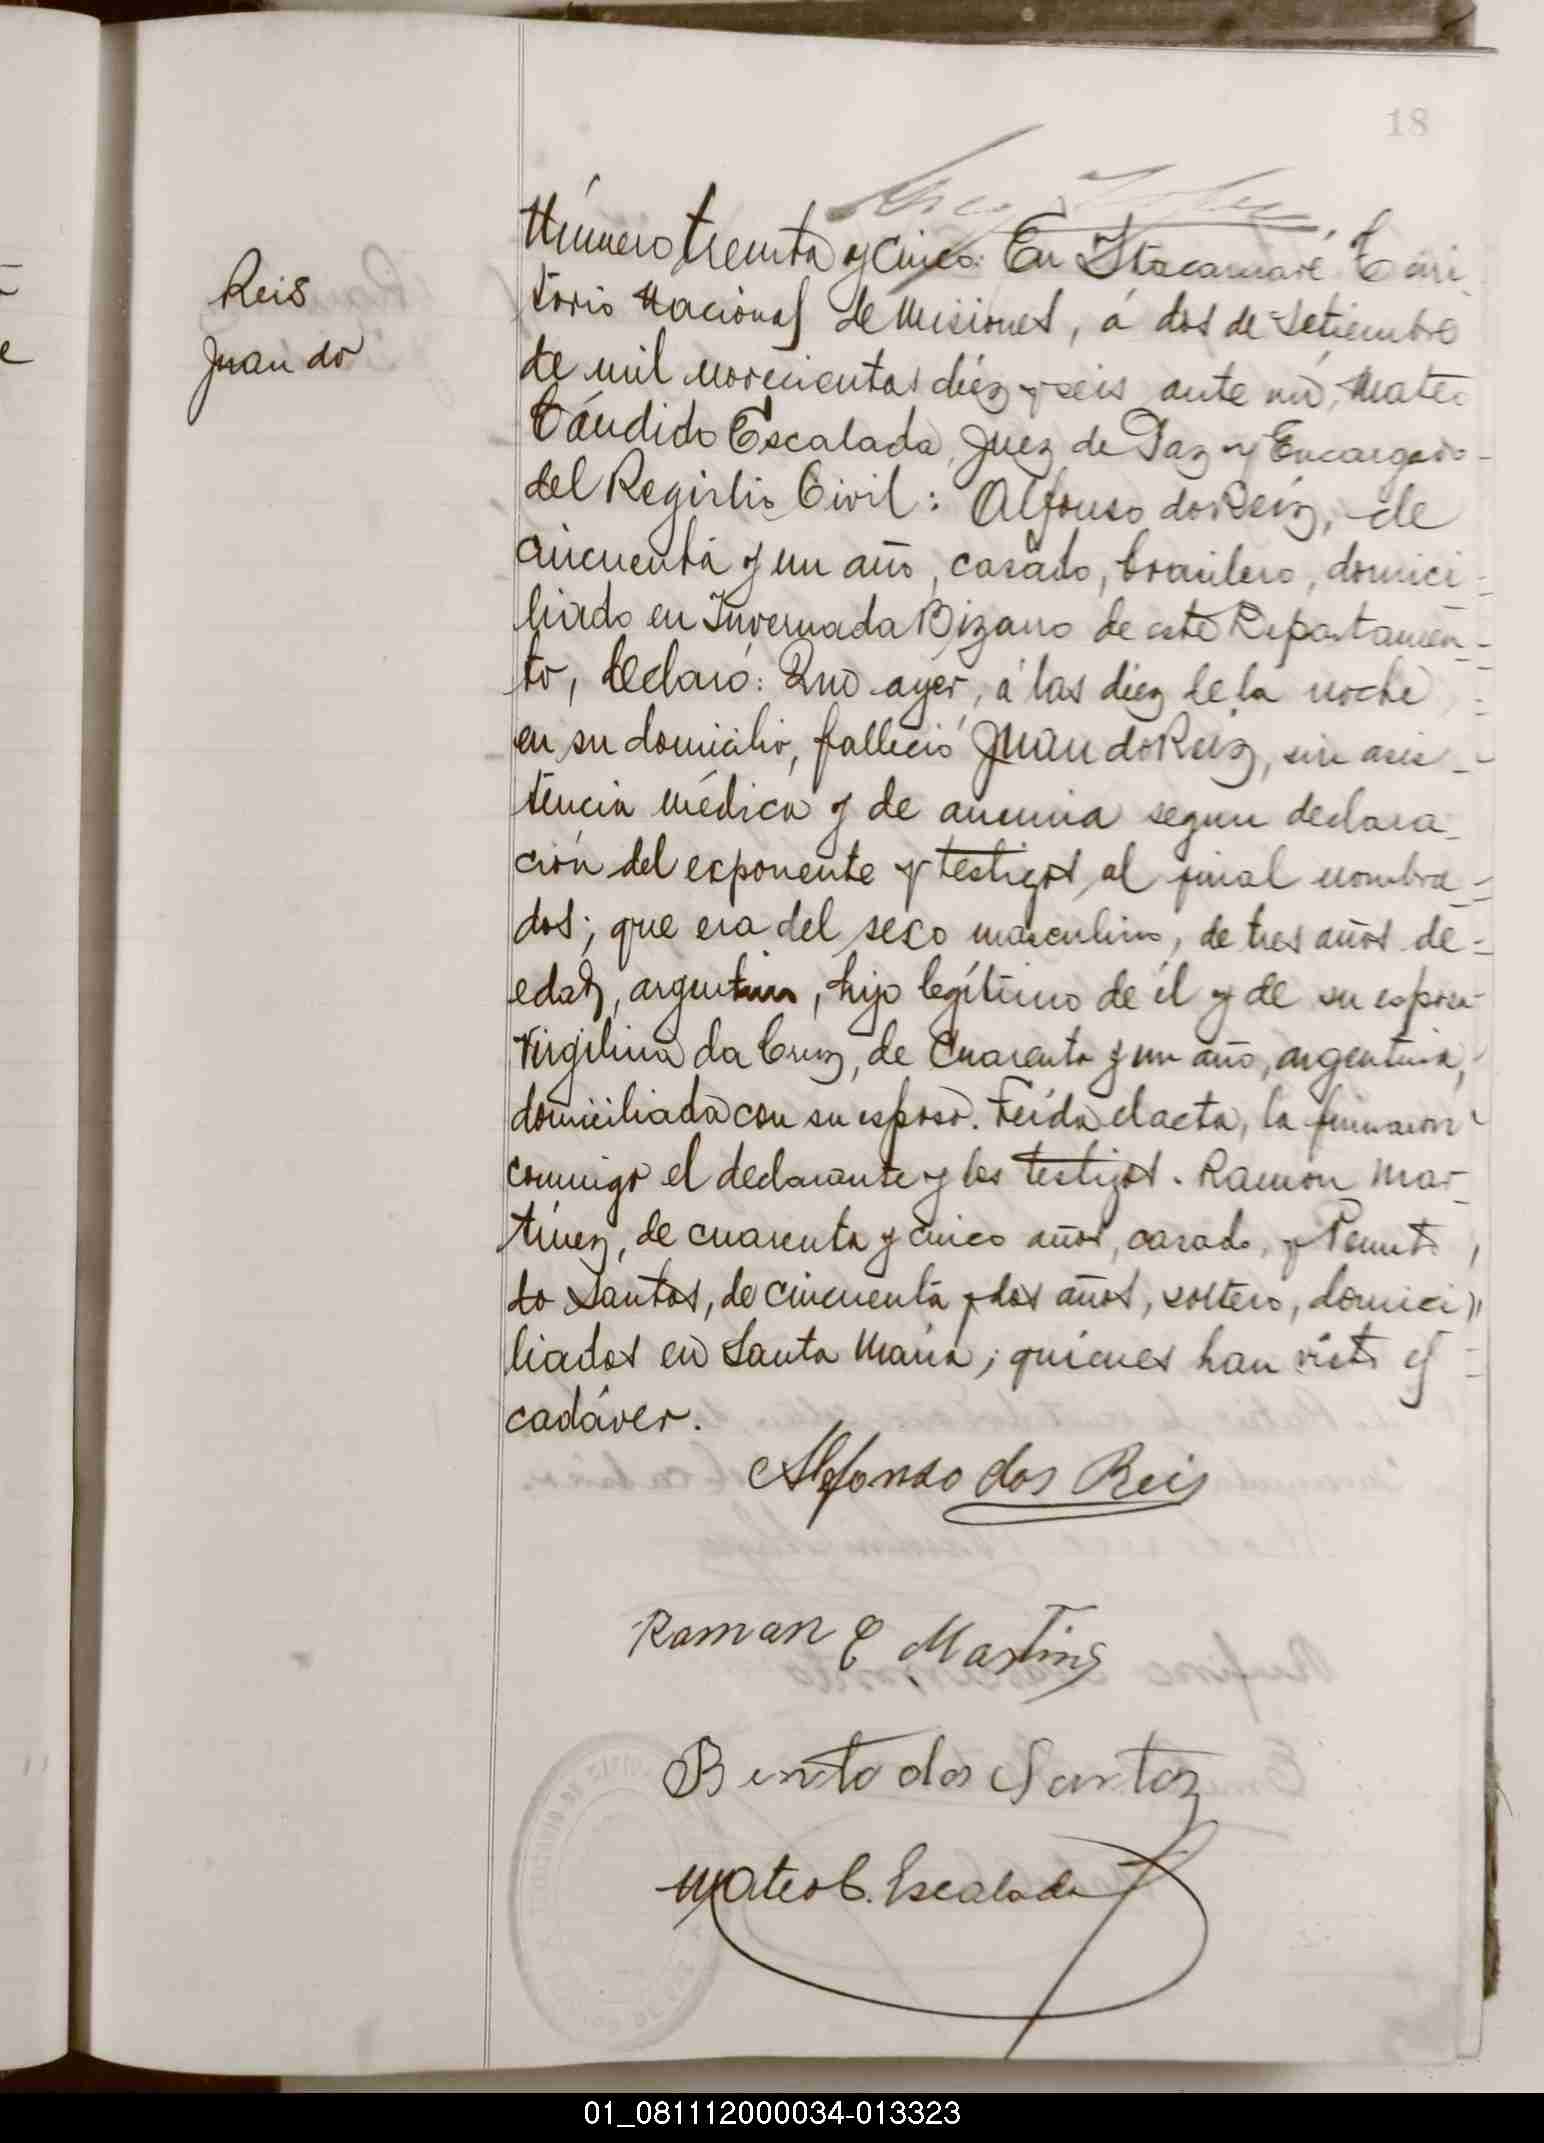 18
Reis
Juan do
Número treinta y cinco: En Itacaruaré Terri-
torio Nacional de Misiones, á dos de Setiembre
de mil novecientos diéz y seis ante mí, Mateo
Cándido Escalada, Juez de Paz y Encargado
del Registro Civil: Alfonso do Reiz, de
cincuenta y un año, casado, brasilero, domici-
liado en Invernada Bizano de este Departamen-
to, declaró: Que ayér, á las diez de la noche,
en su domicilio, falleció Juan do Reiz, sin asis-
tencia médica y de anemia segun declara-
ción del exponente y testigos al final nombra-
dos; que era del sexo masculino, de tres años de
edad, argentino, hijo legítimo de él y de su esposa
Virgilina da Cruz, de cuarenta y un año, argentina,
domiciliada con su esposo. Leída el acta, la firmaron
conmigo el declarante y los testigos. Ramon Mar-
tínez, de cuarenta y cinco años, casado, y Benito
do Santos, de cincuenta y dos años, soltero, domici-
liados en Santa María; quienes han visto el
cadáver.
Alfonso dos Reis
Roman E Martins
Binto dos Santoz
Mateo C. Escalada
01_081112000034-013323